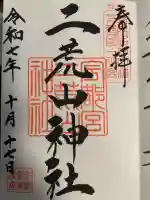 奉拝
二荒山神社
令和七年 十月 十七日